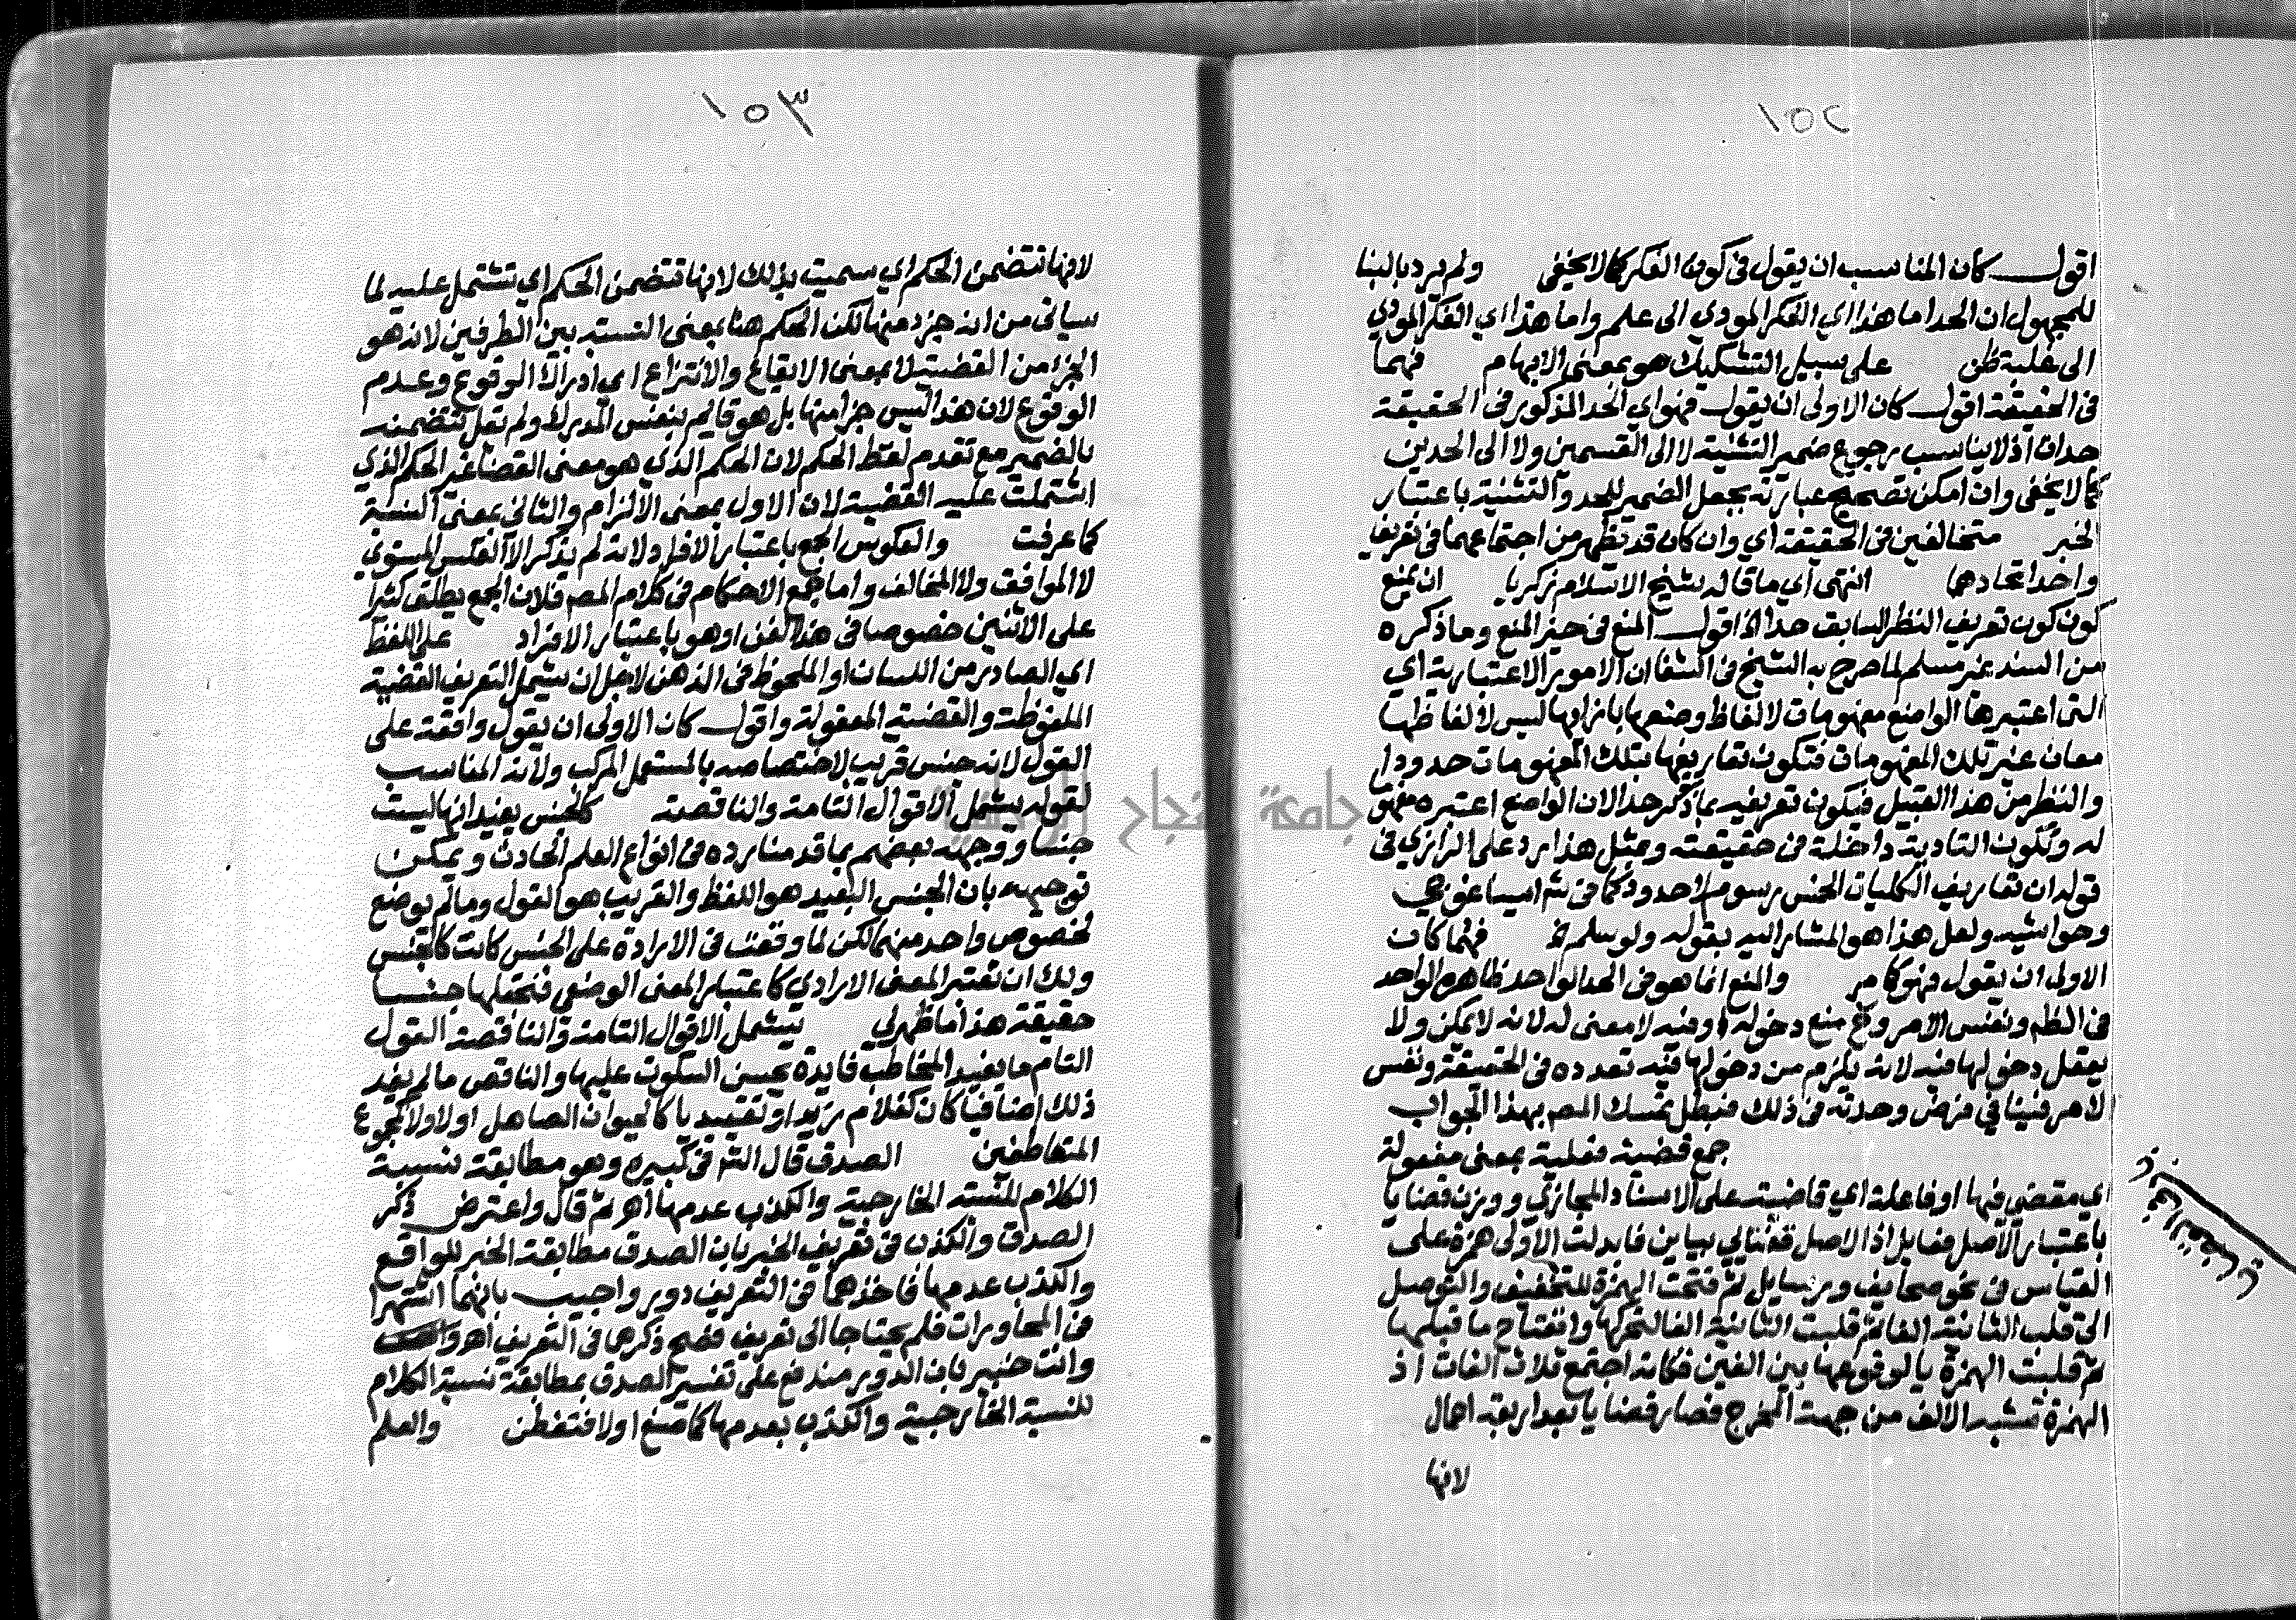 ١٥٢
اقول كان المناسب ان يقول في كون الفكر كما لا يخفى ولم يرد بالبنا
للمجهول ان الحد اما هذا اي الفكر المودي الى علم واما هذا اي الفكر المودي
الى غلبة ظن على سبيل التشكيك هو بمعنى الابهام فهما
في الحقيقة اقول كان الاولى ان يقول فهو اي الحد المذكور في الحقيقة
حدان اذ لا يناسب رجوع ضمير التثنية لا الى القسمين ولا الى الحدين
كما لا يخفى وان امكن تصحيح عبارته بجعل الضمير للحد والتثنية باعتبار
الخبر متخالفين في الحقيقة اي وان كان قد تظهر من اجتماعهما في تعريف
واحد اتحادهما انتهى اي ما قاله شيخ الاسلام زكريا ان يمنع
كون كون تعريف النظر السابق حدا اقول المنع في حيز المنع وما ذكره
من السند غير مسلم لما صرح به الشيخ في الشفا ان الامور الاعتبارية اي
التي اعتبرها الواضع مفهومات لالفاظ وضعها بازايها ليس لالفاظها
معان غير تلك المفهومات فتكون تعاريفها بتلك المفهومات حدودا
والنظر من هذا القبيل فيكون تعريفه بما ذكر حدا لان الواضع اعتبره مفهوما
له وتكون التادية داخلة في حقيقته وبمثل هذا يرد على الرازي في
قوله ان تعاريف الكليات الخمس رسوم لا حدود كما في شم ايساغوجي
وحواشيه ولعل هذا هو المشار اليه بقوله ولو سلم فهما كان
الاولى ان يقول فهو كما مر والمنع انما هو في الحد الواحد ظاهره الواحد
في النظم ونفس الامر وح منع دخول او فيه لا معنى له لانه لا يمكن ولا
يعقل دخولها فيه لانه يلزم من دخولها فيه تعدده في الحقيقة ونفس
الامر فينافي فرض وحدته في ذلك فبطل تمسك المصم بهذا الجواب
جمع قضية فعلية بمعنى مفعولة
اي مقضي فيها او فاعلة اي قاضية على الاسناد المجازي ووزن قضايا
باعتبار الاصل فعايل اذ الاصل قضايي بياين فابدلت الاولى همزة على
القياس في نحو صحايف ورسايل ثم فتحت الهمزة للتخفيف والتوصل
الى قلب الثانية الفا ثم قلبت الثانية الفا لتحركها وانفتاح ما قبلها
ثم قلبت الهمزة يا لوقوعها بين الفين فكانه اجتمع ثلاث الفات اذ
الهمزة تشبه الالف من جهة المخرج فصار قضايا بعد اربعة اعمال
لانها
١٥٣
لانها تتضمن الحكم اي سميت بذلك لانها تتضمن الحكم اي تشتمل عليه لما
سياتي من انه جزء منها لكن الحكم هنا بمعنى النسبة بين الطرفين لانه هو
الجزء من القضية لا بمعنى الايقاع والانتزاع اي ادراك الوقوع وعدم
الوقوع لان هذا ليس جزا منها بل هو قايم بنفس المدرك ولم يقل تتضمنه
بالضمير مع تقدم لفظ الحكم لان الحكم الذي هو معنى القضا غير الحكم الذي
اشتملت عليه القضية لان الاول بمعنى الالزام والثاني بمعنى النسبة
كما عرفت والعكوس الجمع باعتبار الافراد ولانه لم يذكر الا العكس المستوي
لا الموافق ولا المخالف واما جمع الاحكام في كلام المصم فلان الجمع يطلق كثيرا
على الاثنين خصوصا في هذا الفن او هو باعتبار الافراد على اللفظ
اي الصادر من اللسان او الملحوظ في الذهن لاجل ان يشمل التعريف القضية
الملفوظة والقضية المعقولة واقول كان الاولى ان يقول واقعة على
القول لانه جنس قريب لاختصاصه بالمستعمل المركب ولانه المناسب
لقوله يشمل الاقوال التامة والناقصة كالجنس يفيد انها ليست
جنسا ووجهه بعضهم بما قدمنا رده في انواع العلم الحادث ويمكن
توجيهه بان الجنس البعيد هو اللفظ والقريب هو القول وما لم يوضع
لخصوص واحد منهما لكن لما وقعت في الارادة على الجنس كانت كالجنس
ولك ان تعتبر المعنى الارادي كاعتبار المعنى الوضعي فتجعلها جنسا
حقيقة هذا ما ظهر لي يشمل الاقوال التامة والناقصة القول
التام ما يفيد المخاطب فايدة يحسن السكوت عليها والناقص ما لم يفد
ذلك اضافيا كان كغلام زيد او تقييديا كالحيوان الصاهل اولا ولا كمجموع
المتعاطفين الصدق قال الشم في كبيره وهو مطابقة نسبة
الكلام للنسبة الخارجية والكذب عدمها اهـ ثم قال واعترض ذكر
الصدق والكذب في تعريف الخبر بان الصدق مطابقة الخبر للواقع
والكذب عدمها فاخذهما في التعريف دور واجيب بانهما اشتهرا
في المحاورات فلم يحتاجا الى تعريف فصح ذكرهما في التعريف اهـ
وانت خبير بان الدور مندفع على تفسير الصدق بمطابقة نسبة الكلام
للنسبة الخارجية والكذب بعدمها كما صنع اولا فتفطن والعلم
جامعة النجاح الوطنية